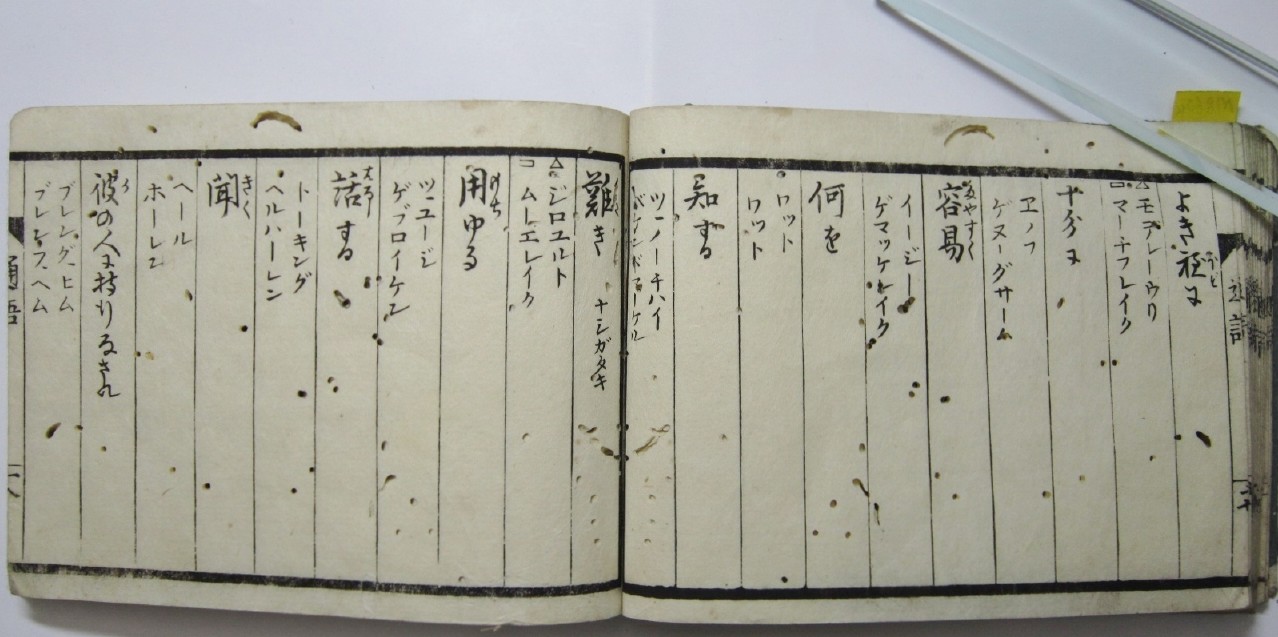 よき程に
△モデレーウリ
□マーチフレイク
十分に
エノフ
ゲヌーグサーム
容易
たやすく
イージー
ゲマッケレイク
何を
ワット
ワット
知する
ツーノーチハイ
難き ナシガタキ
△ジロユルト
□ムーエレイク
用ゆる
ツーユージ
ゲブロイケン
話する
トーキング
ヘルハーレン
聞
きく
ヘール
ホーレン
彼の人に持
ブレングヒム
ブレングヘム